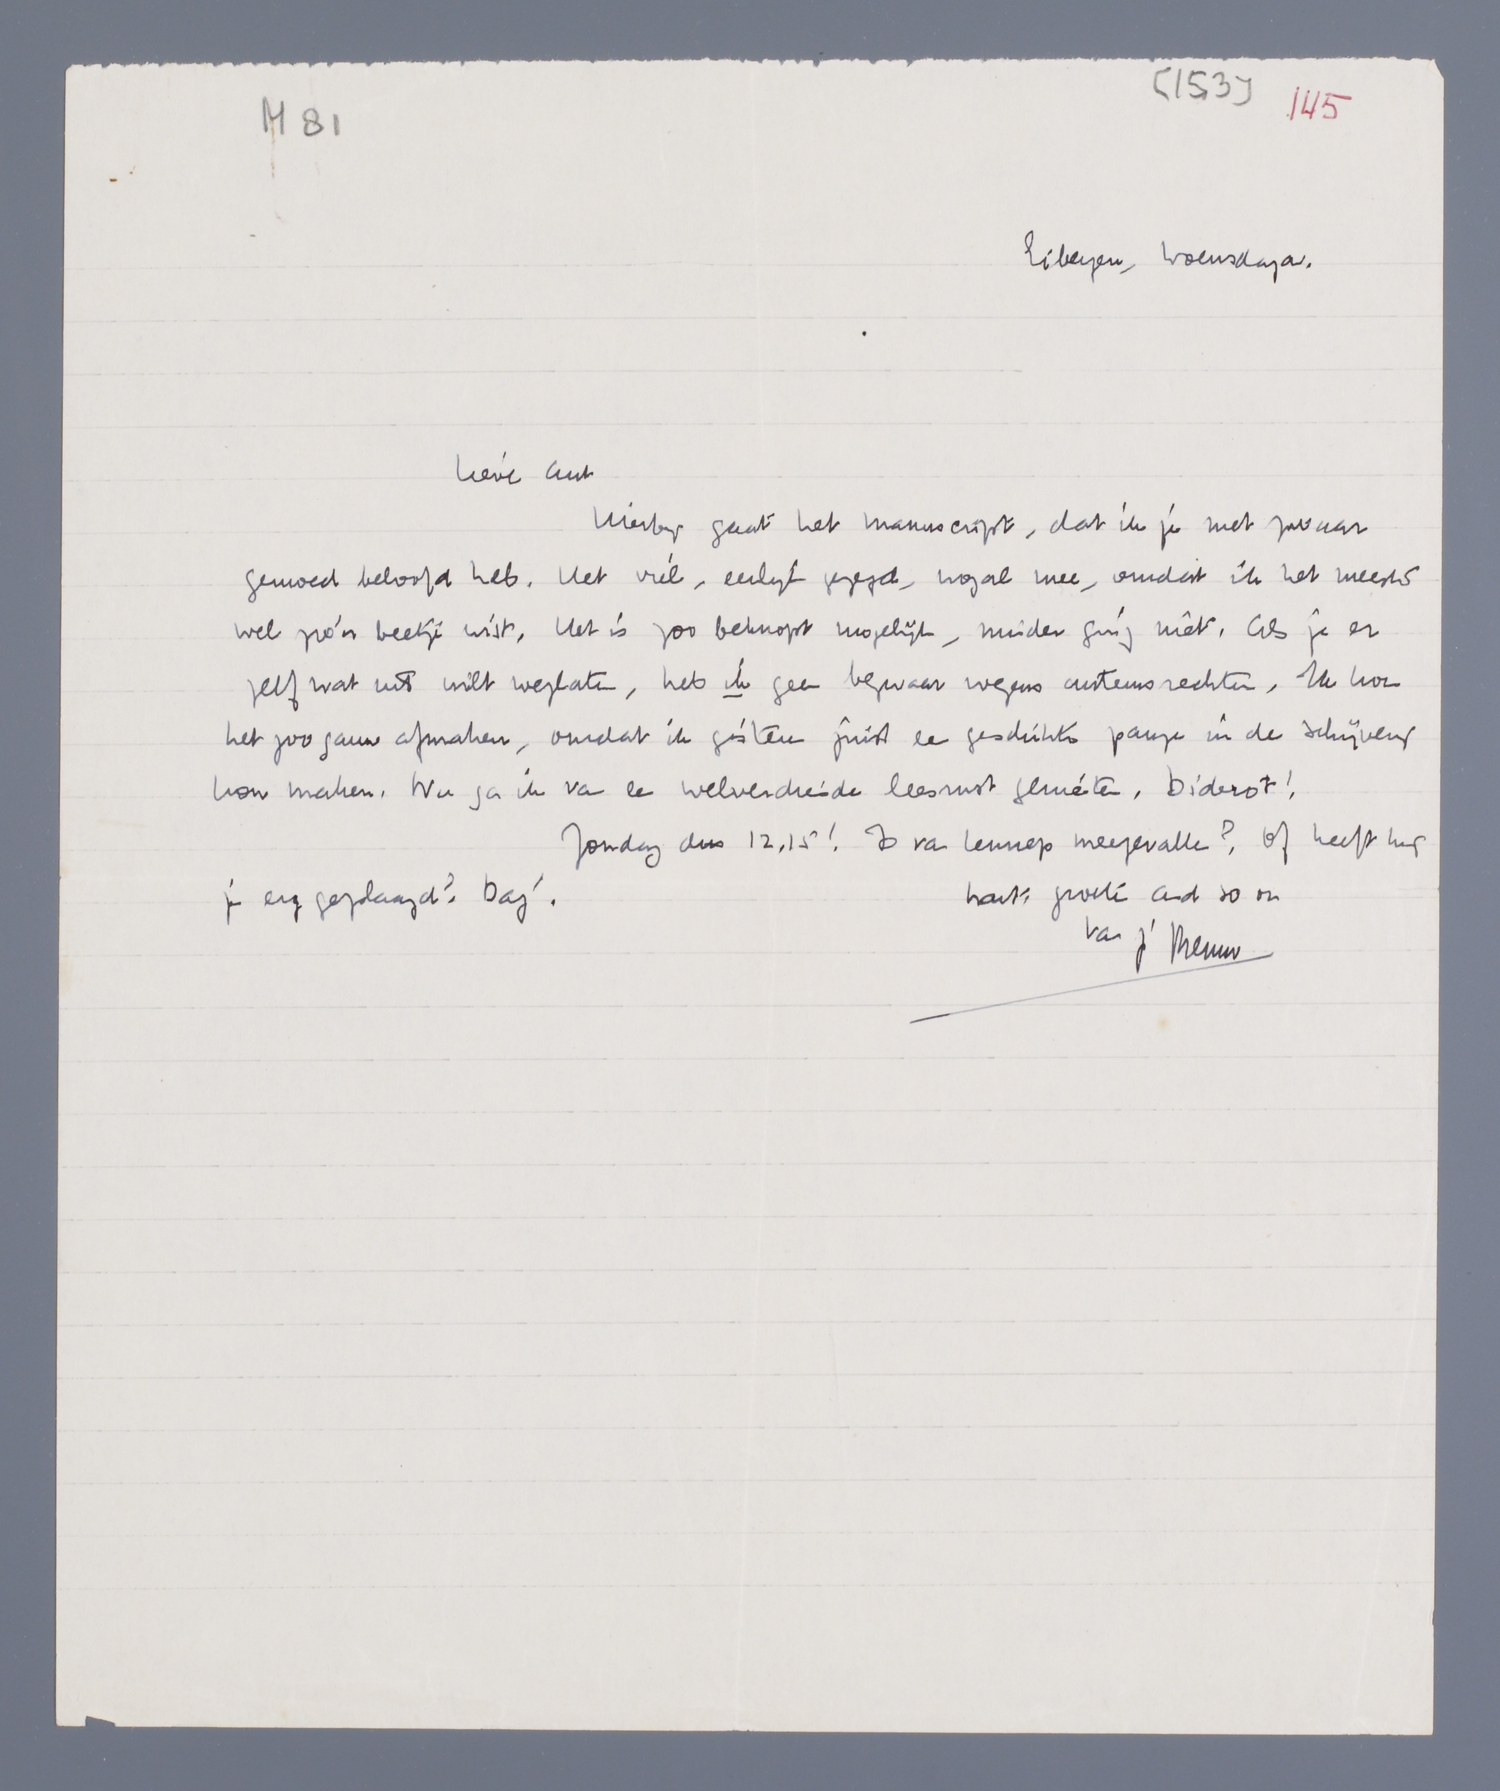 M 81
[153] 145
Eibergen, Woensdag.
Lieve Ant
Hierbij gaat het manuscript, dat ik je met zwaar
gemoed beloofd heb. Het viel, eerlijk gezegd, nogal mee, omdat ik het meeste
wel zoo'n beetje wist. Het is zoo beknopt mogelijk, minder ging niet. Als je er
zelf wat uit wilt weglaten, heb ik geen bezwaar wegens auteursrechten. Ik kon
het zoo gauw afmaken, omdat ik gisteren juist een geschikte pauze in de schrijverij
kon maken. Nu ga ik van een welverdiende leesrust genieten. Diderot!
Zondag dus 12.15! Is van Lennep meegevallen? Of heeft hij
je erg geplaagd? Dag!
hart. groeten and so on
van je Menno